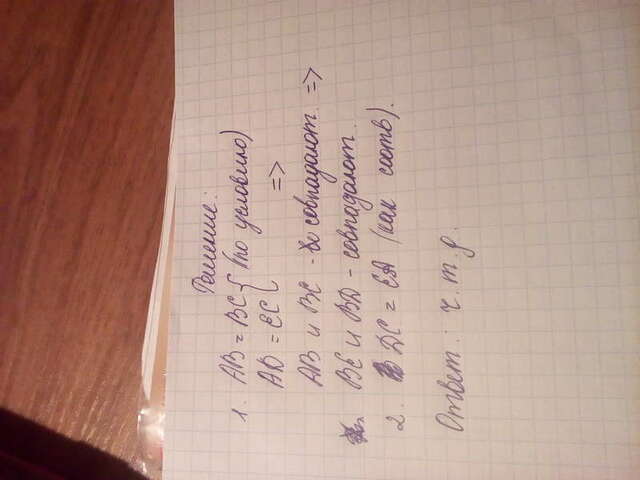 Решение:
1. AB = BC { (по условию)
AD = EC { =>
AB и BC - совпадают =>
BE и BD - совпадают.
2. DC = EA (как соотв).
Ответ: ч.т.д.